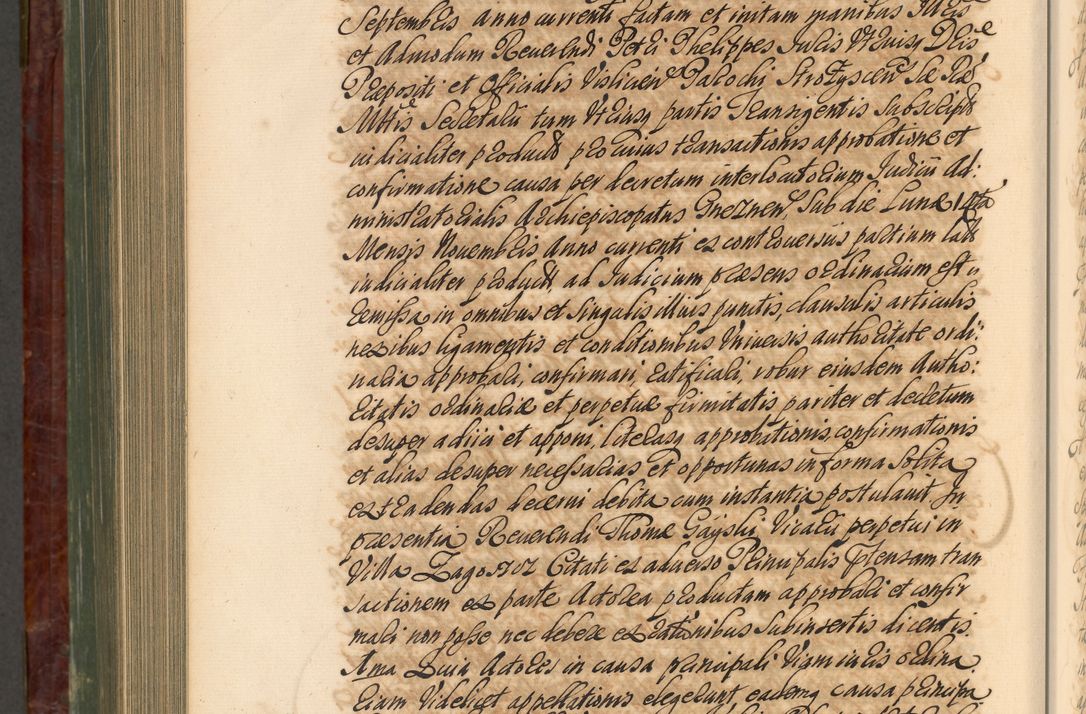 Septembris anno currenti factam et initam manibus
et Admodum Reverendi Petri Phelippes Iuris Utriusq Dris
Præpositi et Officialis Vislicien Parochi Strozyscen Sæ Ræ
Mttis Secretarii tum Utriusq partis Transigentis subscript
iudicialiter product pro cuius transactionis approbatione et
confirmatione causa per decretum interlocutorium Iudicii Ad:
ministratorialis Archiepiscopatus Gneznen, Sub die Lunæ 14ta
Mensis Novembris Anno currenti ex controversiis partium lat
iudicialiter product, ad Iudicium præsens ordinarium est
remissa in omnibus et singulis illius punctis, clausulis articulis
nexibus ligamentis et conditionibus Universis authoritate ordi:
naria approbari, confirmari, ratificari, robur eiusdem Autho:
ritatis ordinariæ et perpetuæ firmitatis pariter et decretum
desuper adiici et apponi, literasq approbationis, confirmationis
et alias desuper necessarias et opportunas in forma solita
extradendas decerni debita cum instantia postulavit. In
præsentia Reverendi Thomæ Gayski Vicarii perpetui in
Villa Zagosc Citati ex adverso Principalis ptensam tran
sactionem ex parte Actorea productam approbari et confir
mari non posse nec debere ex rationibus subinsertis dicentis.
Ima Quia Actores in causa principali viam iuris ordina
rium videlicet appellationis elegerunt eademq causa principa